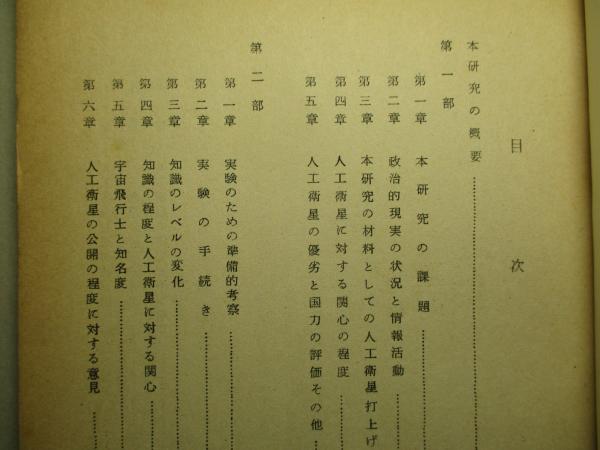 目次
本研究の概要……………………
第一部
第一章 本研究の課題……………
第二章 政治的現実の状況と情報活動……
第三章 本研究の材料としての人工衛星打上げ
第四章 人工衛星に対する関心の程度……
第五章 人工衛星の優劣と国力の評価その他…
第二部
第一章 実験のための準備的考察…………
第二章 実験の手続き……………
第三章 知識のレベルの変化……………
第四章 知識の程度と人工衛星に対する関心……
第五章 宇宙飛行士と知名度……………
第六章 人工衛星の公開の程度に対する意見…